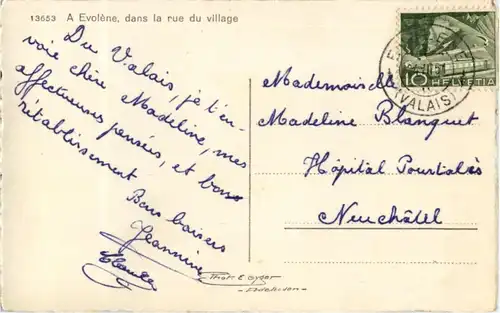 13653 A Evolène, dans la rue du village
Du Valais, je t'en-
voie chère Madeline, mes
affectueuses pensées, et bons
rétablissement
Bons baisers
Jeannine
Mademoiselle
Madeline Blanquet
Hôpital Pourtalès
Neuchâtel
10 HELVETIA
(VALAIS)
Phot. E. Gyger